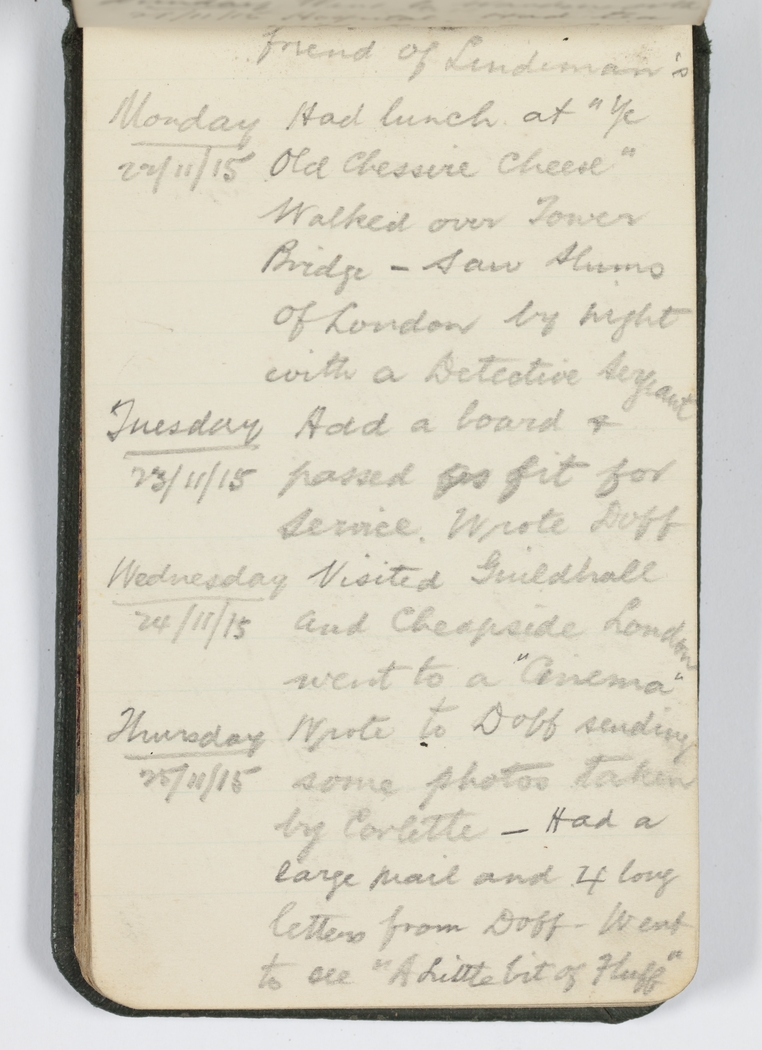 friend of Lindeman's
Monday Had lunch at "Ye
22/11/15 Old Chessire Cheese"
Walked over Tower
Bridge - Saw Slums
of London by night
with a Detective Sergeant
Tuesday Had a board &
23/11/15 passed as fit for
Service. Wrote Doff
Wednesday Visited Guildhall
24/11/15 and Cheapside London
went to a "Cinema"
Thursday Wrote to Doff sending
25/11/15 some photos taken
by Corlette - Had a
large mail and 4 long
letters from Doff - Went
to see "A Little bit of Fluff"